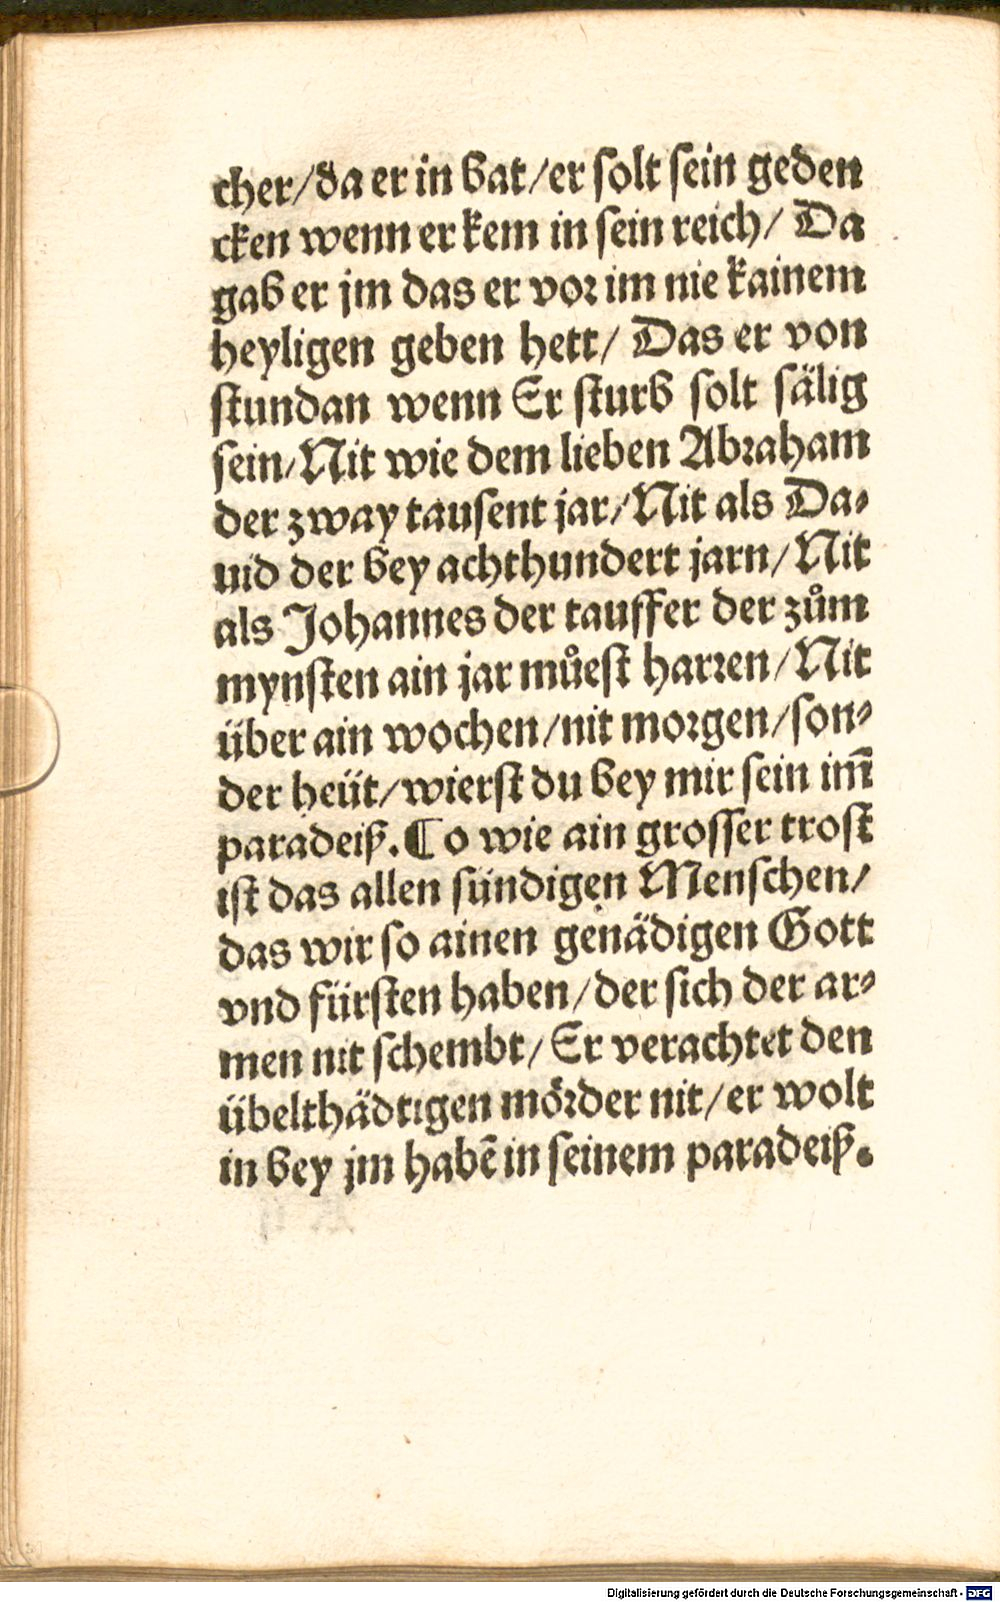 cher/da er in bat/er solt sein geden
cken wenn er kem in sein reich/ Da
gab er jm das er vor im nie kainem
heyligen geben hett/ Das er von
stundan wenn Er sturb solt sälig
sein/Nit wie dem lieben Abraham
der zway tausent jar/Nit als Da⸗
uid der bey achthundert jarn/Nit
als Johannes der tauffer der zům
mynsten ain jar můest harren/Nit
über ain wochen/nit morgen/son⸗
der heüt/wierst du bey mir sein im̄
paradeiß. ¶ O wie ain grosser trost
ist das allen sündigen Menschen/
das wir so ainen genädigen Gott
vnd fürsten haben/der sich der ar⸗
men nit schembt/Er verachtet den
übelthädtigen mörder nit/er wolt
in bey jm habē in seinem paradeiß.
Digitalisierung gefördert durch die Deutsche Forschungsgemeinschaft - DFG